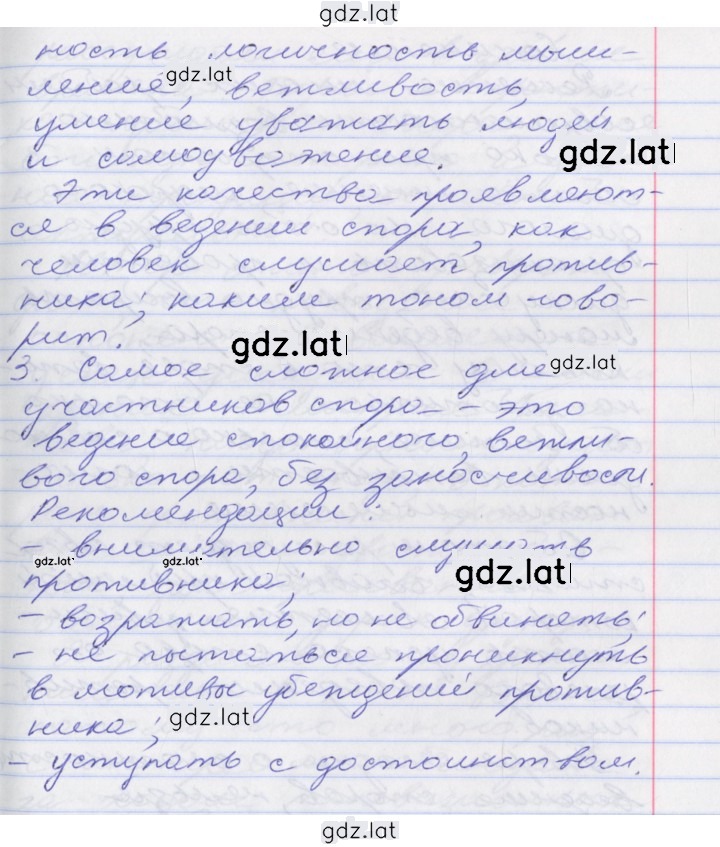 gdz.lat
ность логичность мыш-
ления, ветливость,
gdz.lat
умение уважать людей
и самоуважение.
gdz.lat
Эти качества проявляют-
ся в ведении спора, как
человек слушает против-
ника, каким тоном гово-
рит.
gdz.lat
3. Самое сложное для
gdz.lat
участников спора - это
ведение спокойного, ветли-
вого спора, без заносчивости.
Рекомендации:
- внимательно слушать
gdz.lat gdz.lat
противника;
gdz.lat
- возражать, но не обвинять;
- не пытаться проникнуть
в мотивы убеждений против-
ника;
gdz.lat
- уступать с достоинством.
gdz.lat